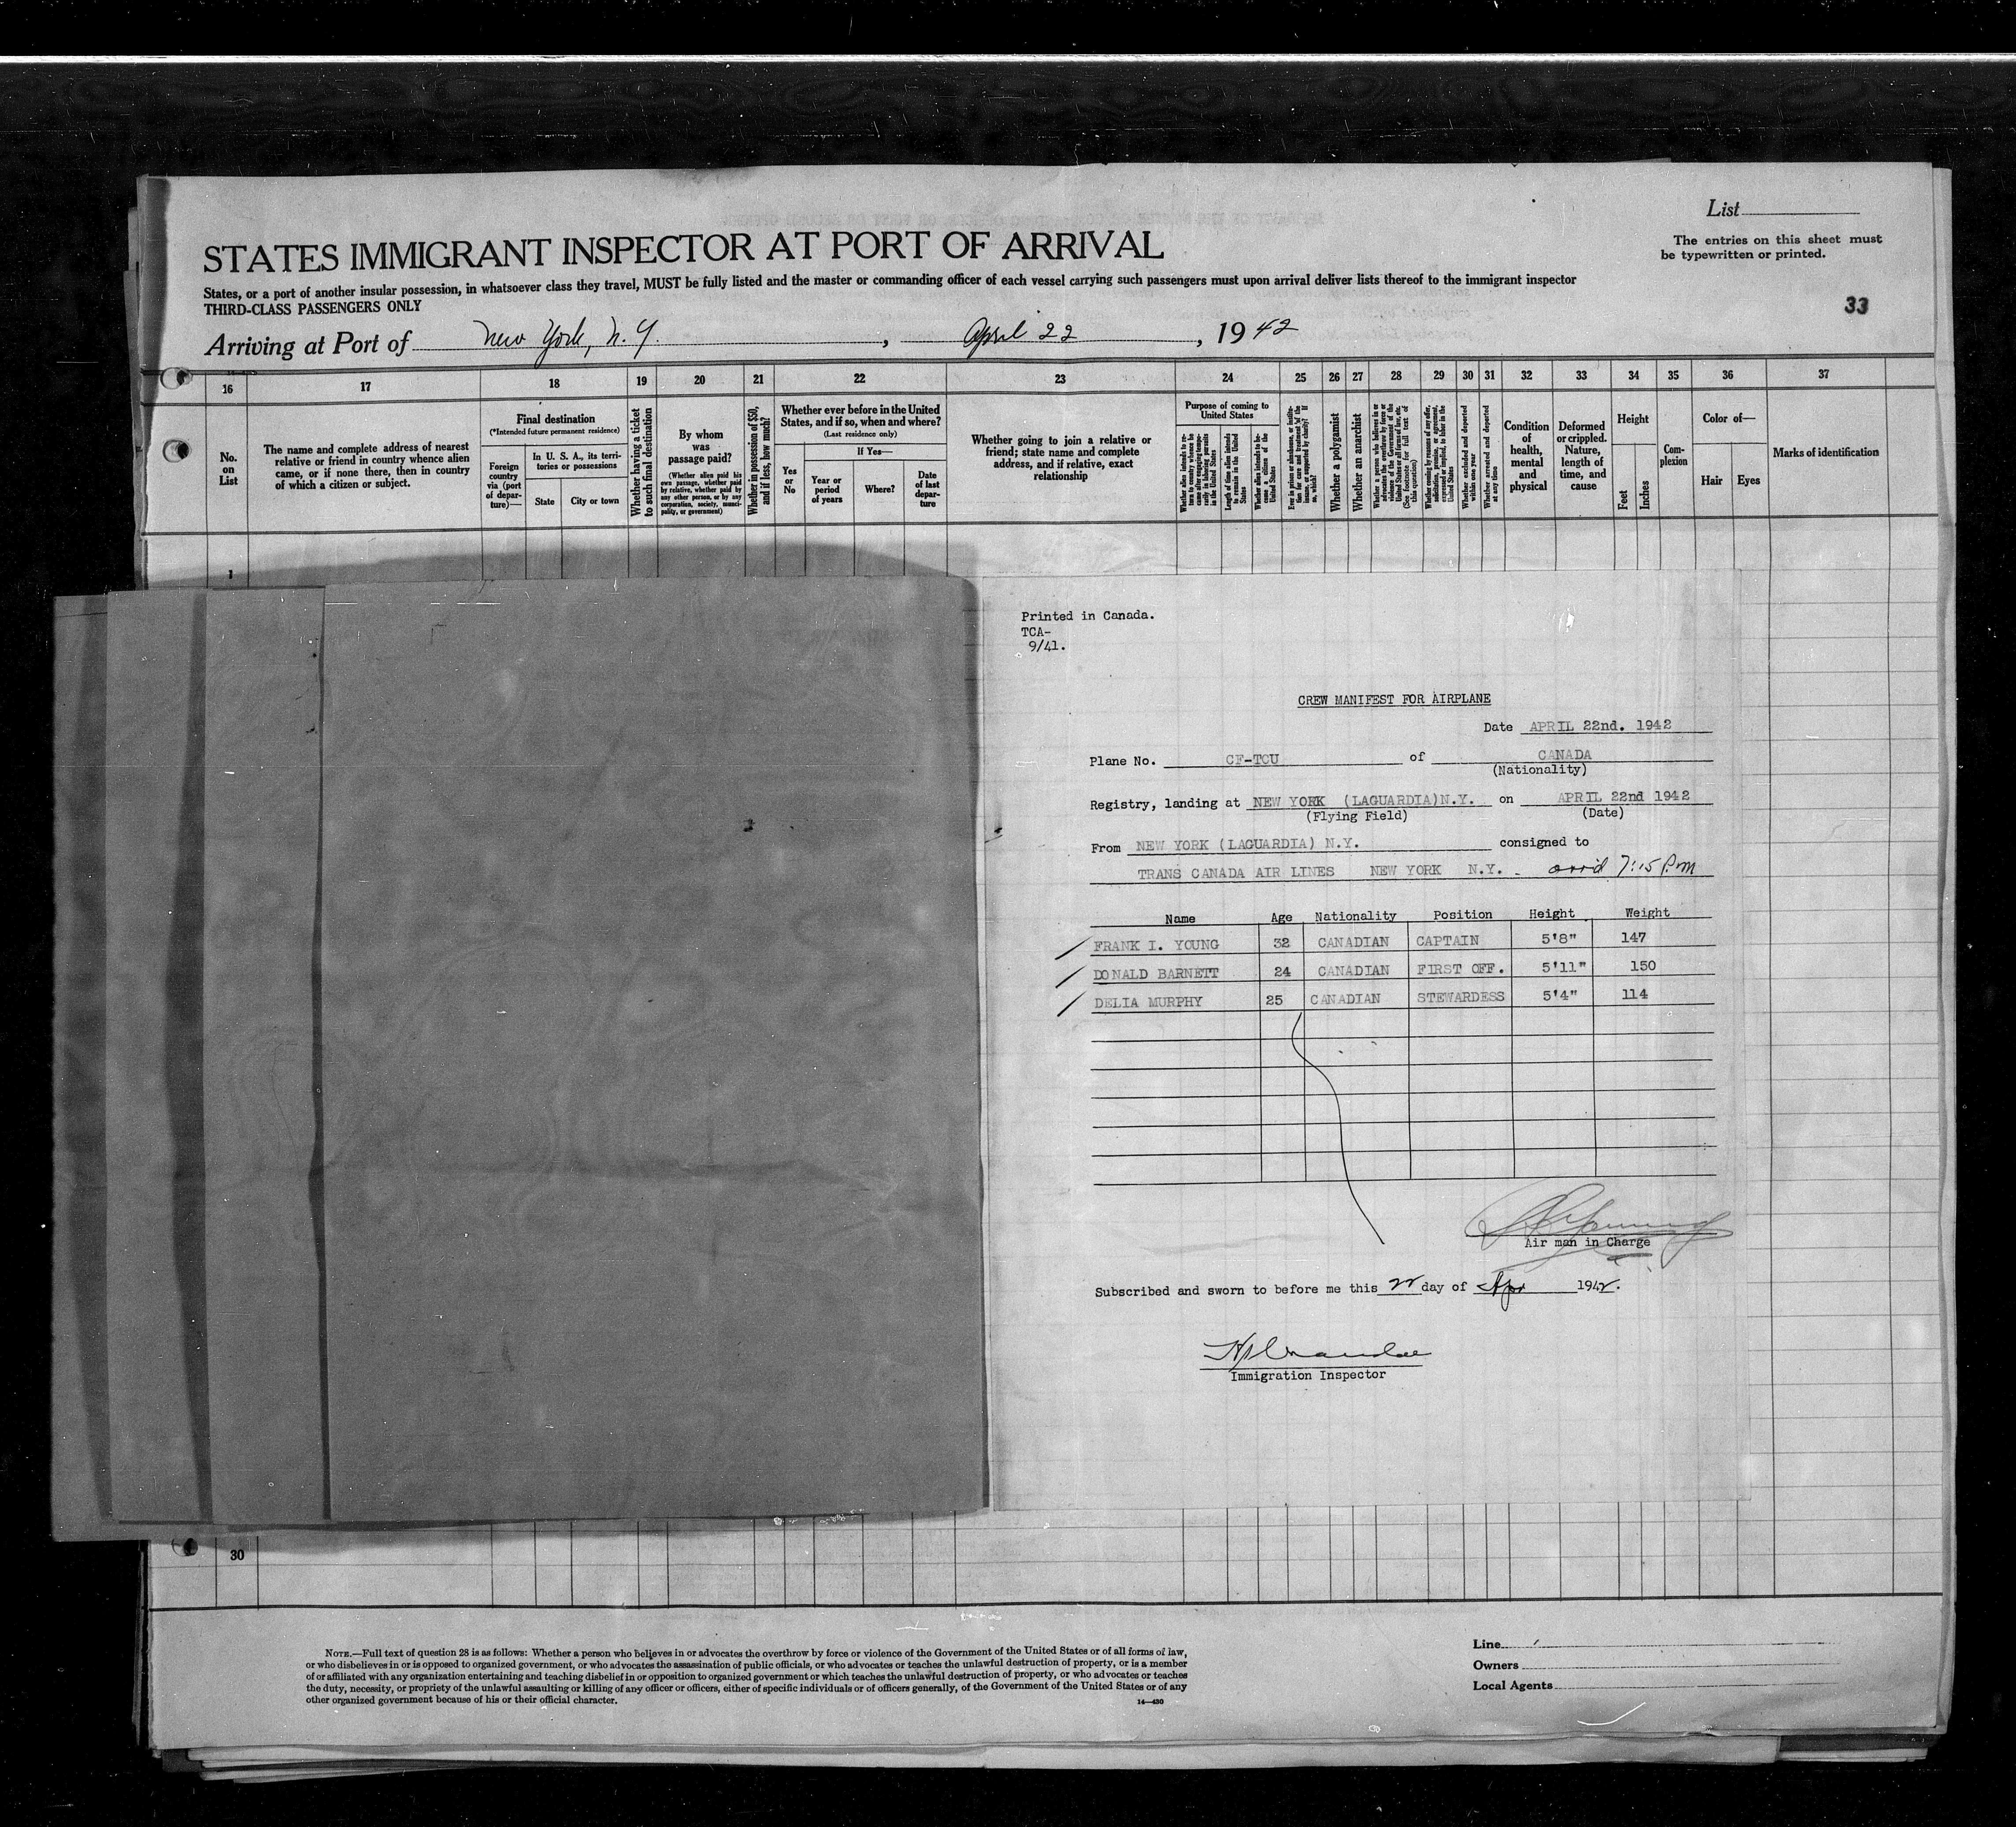 List
The entries on this sheet must
be typewritten or printed.
STATES IMMIGRANT INSPECTOR AT PORT OF ARRIVAL
States, or a port of another insular possession, in whatsoever class they travel, MUST be fully listed and the master or commanding officer of each vessel carrying such passengers must upon arrival deliver lists thereof to the immigrant inspector
THIRD-CLASS PASSENGERS ONLY
33
Arriving at Port of New York, N.Y. , April 22 , 1942
16 17 18 19 20 21 22 23 24 25 26 27 28 29 30 31 32 33 34 35 36 37
No.
on
List
The name and complete address of nearest
relative or friend in country whence alien
came, or if none there, then in country
of which a citizen or subject.
Final destination
(*Intended future permanent residence)
Foreign
country
via (port
of depar-
ture)—
In U. S. A., its terri-
tories or possessions
State
City or town
Whether having a ticket
to such final destination
By whom
was
passage paid?
(Whether alien paid his
own passage, whether paid
by relative, whether paid by
any other person, or by any
corporation, society, munici-
pality, or government)
Whether in possession of $50,
and if less, how much?
Whether ever before in the United
States, and if so, when and where?
(Last residence only)
Yes
or
No
If Yes—
Year or
period
of years
Where?
Date
of last
depar-
ture
Whether going to join a relative or
friend; state name and complete
address, and if relative, exact
relationship
Purpose of coming to
United States
Length of time alien intends
to remain in the United
States
Whether alien intends to be-
come a citizen of the
United States
Whether a polygamist
Whether an anarchist
Whether excluded and deported
within one year
Whether arrested and deported
at any time
Condition
of
health,
mental
and
physical
Deformed
or crippled.
Nature,
length of
time, and
cause
Height
Feet
Inches
Com-
plexion
Color of—
Hair
Eyes
Marks of identification
1
Printed in Canada.
TCA-
9/41.
CREW MANIFEST FOR AIRPLANE
Date APRIL 22nd. 1942
Plane No. CF-TCU of CANADA
(Nationality)
Registry, landing at NEW YORK (LAGUARDIA)N.Y. on APRIL 22nd 1942
(Flying Field) (Date)
From NEW YORK (LAGUARDIA) N.Y. consigned to
TRANS CANADA AIR LINES NEW YORK N.Y. - arrid 7:15 P.m
Name Age Nationality Position Height Weight
FRANK I. YOUNG 32 CANADIAN CAPTAIN 5'8" 147
DONALD BARNETT 24 CANADIAN FIRST OFF. 5'11" 150
DELIA MURPHY 25 CANADIAN STEWARDESS 5'4" 114
Air man in Charge
Subscribed and sworn to before me this 22 day of Apr 1942.
Immigration Inspector
30
NOTE.—Full text of question 28 is as follows: Whether a person who believes in or advocates the overthrow by force or violence of the Government of the United States or of all forms of law,
or who disbelieves in or is opposed to organized government, or who advocates the assassination of public officials, or who advocates or teaches the unlawful destruction of property, or is a member
of or affiliated with any organization entertaining and teaching disbelief in or opposition to organized government or which teaches the unlawful destruction of property, or who advocates or teaches
the duty, necessity, or propriety of the unlawful assaulting or killing of any officer or officers, either of specific individuals or of officers generally, of the Government of the United States or of any
other organized government because of his or their official character.
14—430
Line
Owners
Local Agents